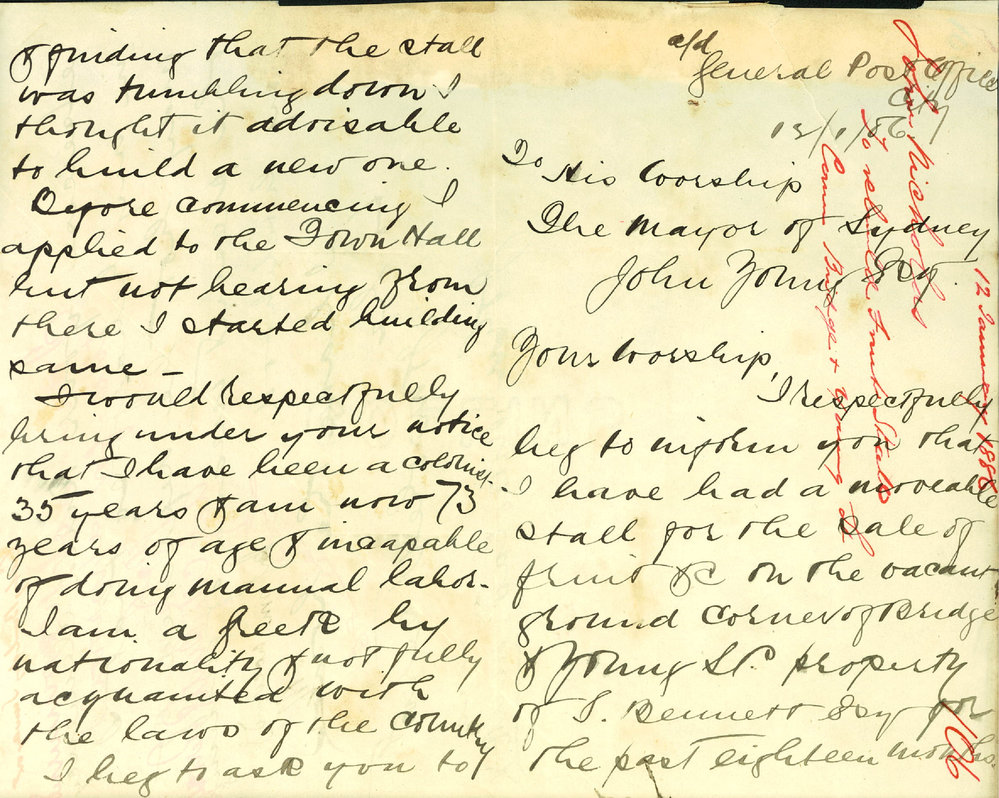 c/o
General Post Office
City
12/1/86
To His Worship
The Mayor of Sydney
John Young Esq.
Your Worship,
I respectfully
beg to inform you that
I have had a moveable
stall for the sale of
fruit &c on the vacant
ground corner of Bridge
& Young St. property
of S. Bennett Esq for
the past eighteen months.
& finding that the stall
was tumbling down I
thought it advisable
to build a new one.
Before commencing I
applied to the Town Hall
but not hearing from
there I started building
same –
I would respectfully
bring under your notice
that I have been a colonist
35 years & am now 73
years of age & incapable
of doing manual labor.
I am a Greek by
nationality & not fully
acquainted with
the laws of the Country
I beg to ask you to
John Nicholas
to rebuild Fruit Stall
Corner Bridge & Young St
12 January 1886
106